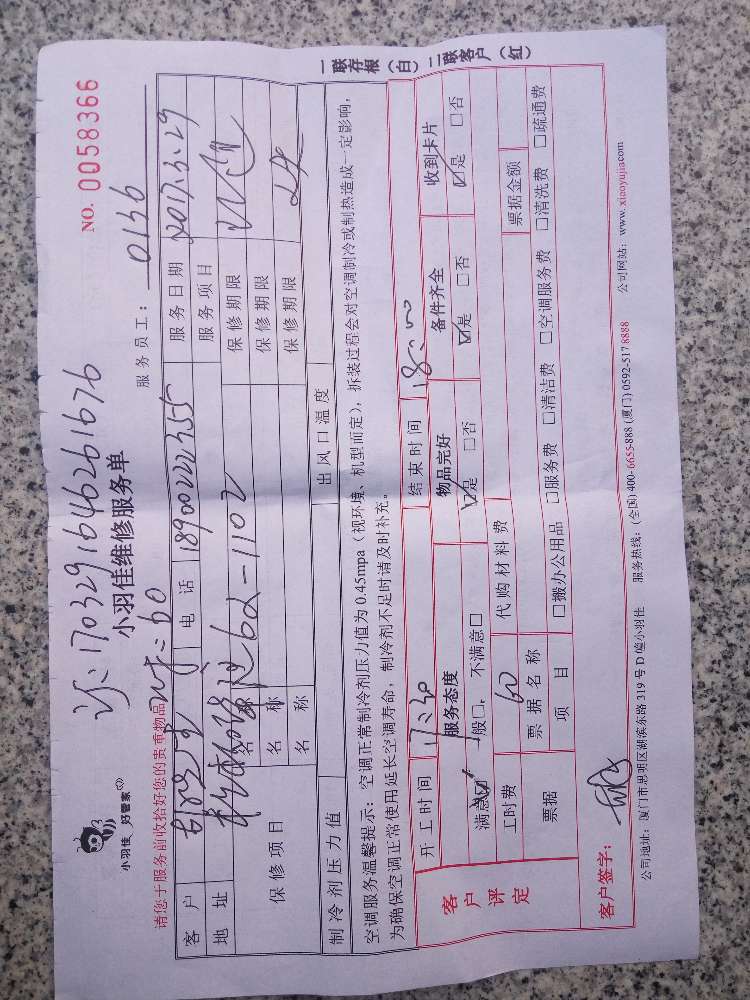 1703291646261676
小羽佳 好管家
小羽佳维修服务单
NO. 0058366
服务员工: 0136
请您于服务前收拾好您的贵重物品
客户
电话 18900222355
服务日期 2017.3.29
地址
服务项目
保修项目
名称 保修期限
名称 保修期限
名称 保修期限
制冷剂压力值
出风口温度
空调服务温馨提示:空调正常制冷剂压力值为 0.45mpa(视环境、机型而定),拆装过程会对空调制冷或制热造成一定影响,
为确保空调正常使用延长空调寿命,制冷剂不足时请及时补充。
一联存根(白)二联客户(红)
客户评定
开工时间 17:30 结束时间 18:00
服务态度 物品完好 备件齐全 收到卡片
满意☑ 一般□、不满意□ ☑是 □否 ☑是 □否 ☑是 □否
工时费 60 代购材料费
票据 票据名称 票据金额
项目 □搬办公用品 □服务费 □清洁费 □空调服务费 □清洗费 □疏通费
客户签字:
公司地址:厦门市思明区湖滨东路 319 号 D 幢小羽佳 服务热线:(全国) 400-6655-888 (厦门) 0592-517 8888 公司网站:www.xiaoyujia.com